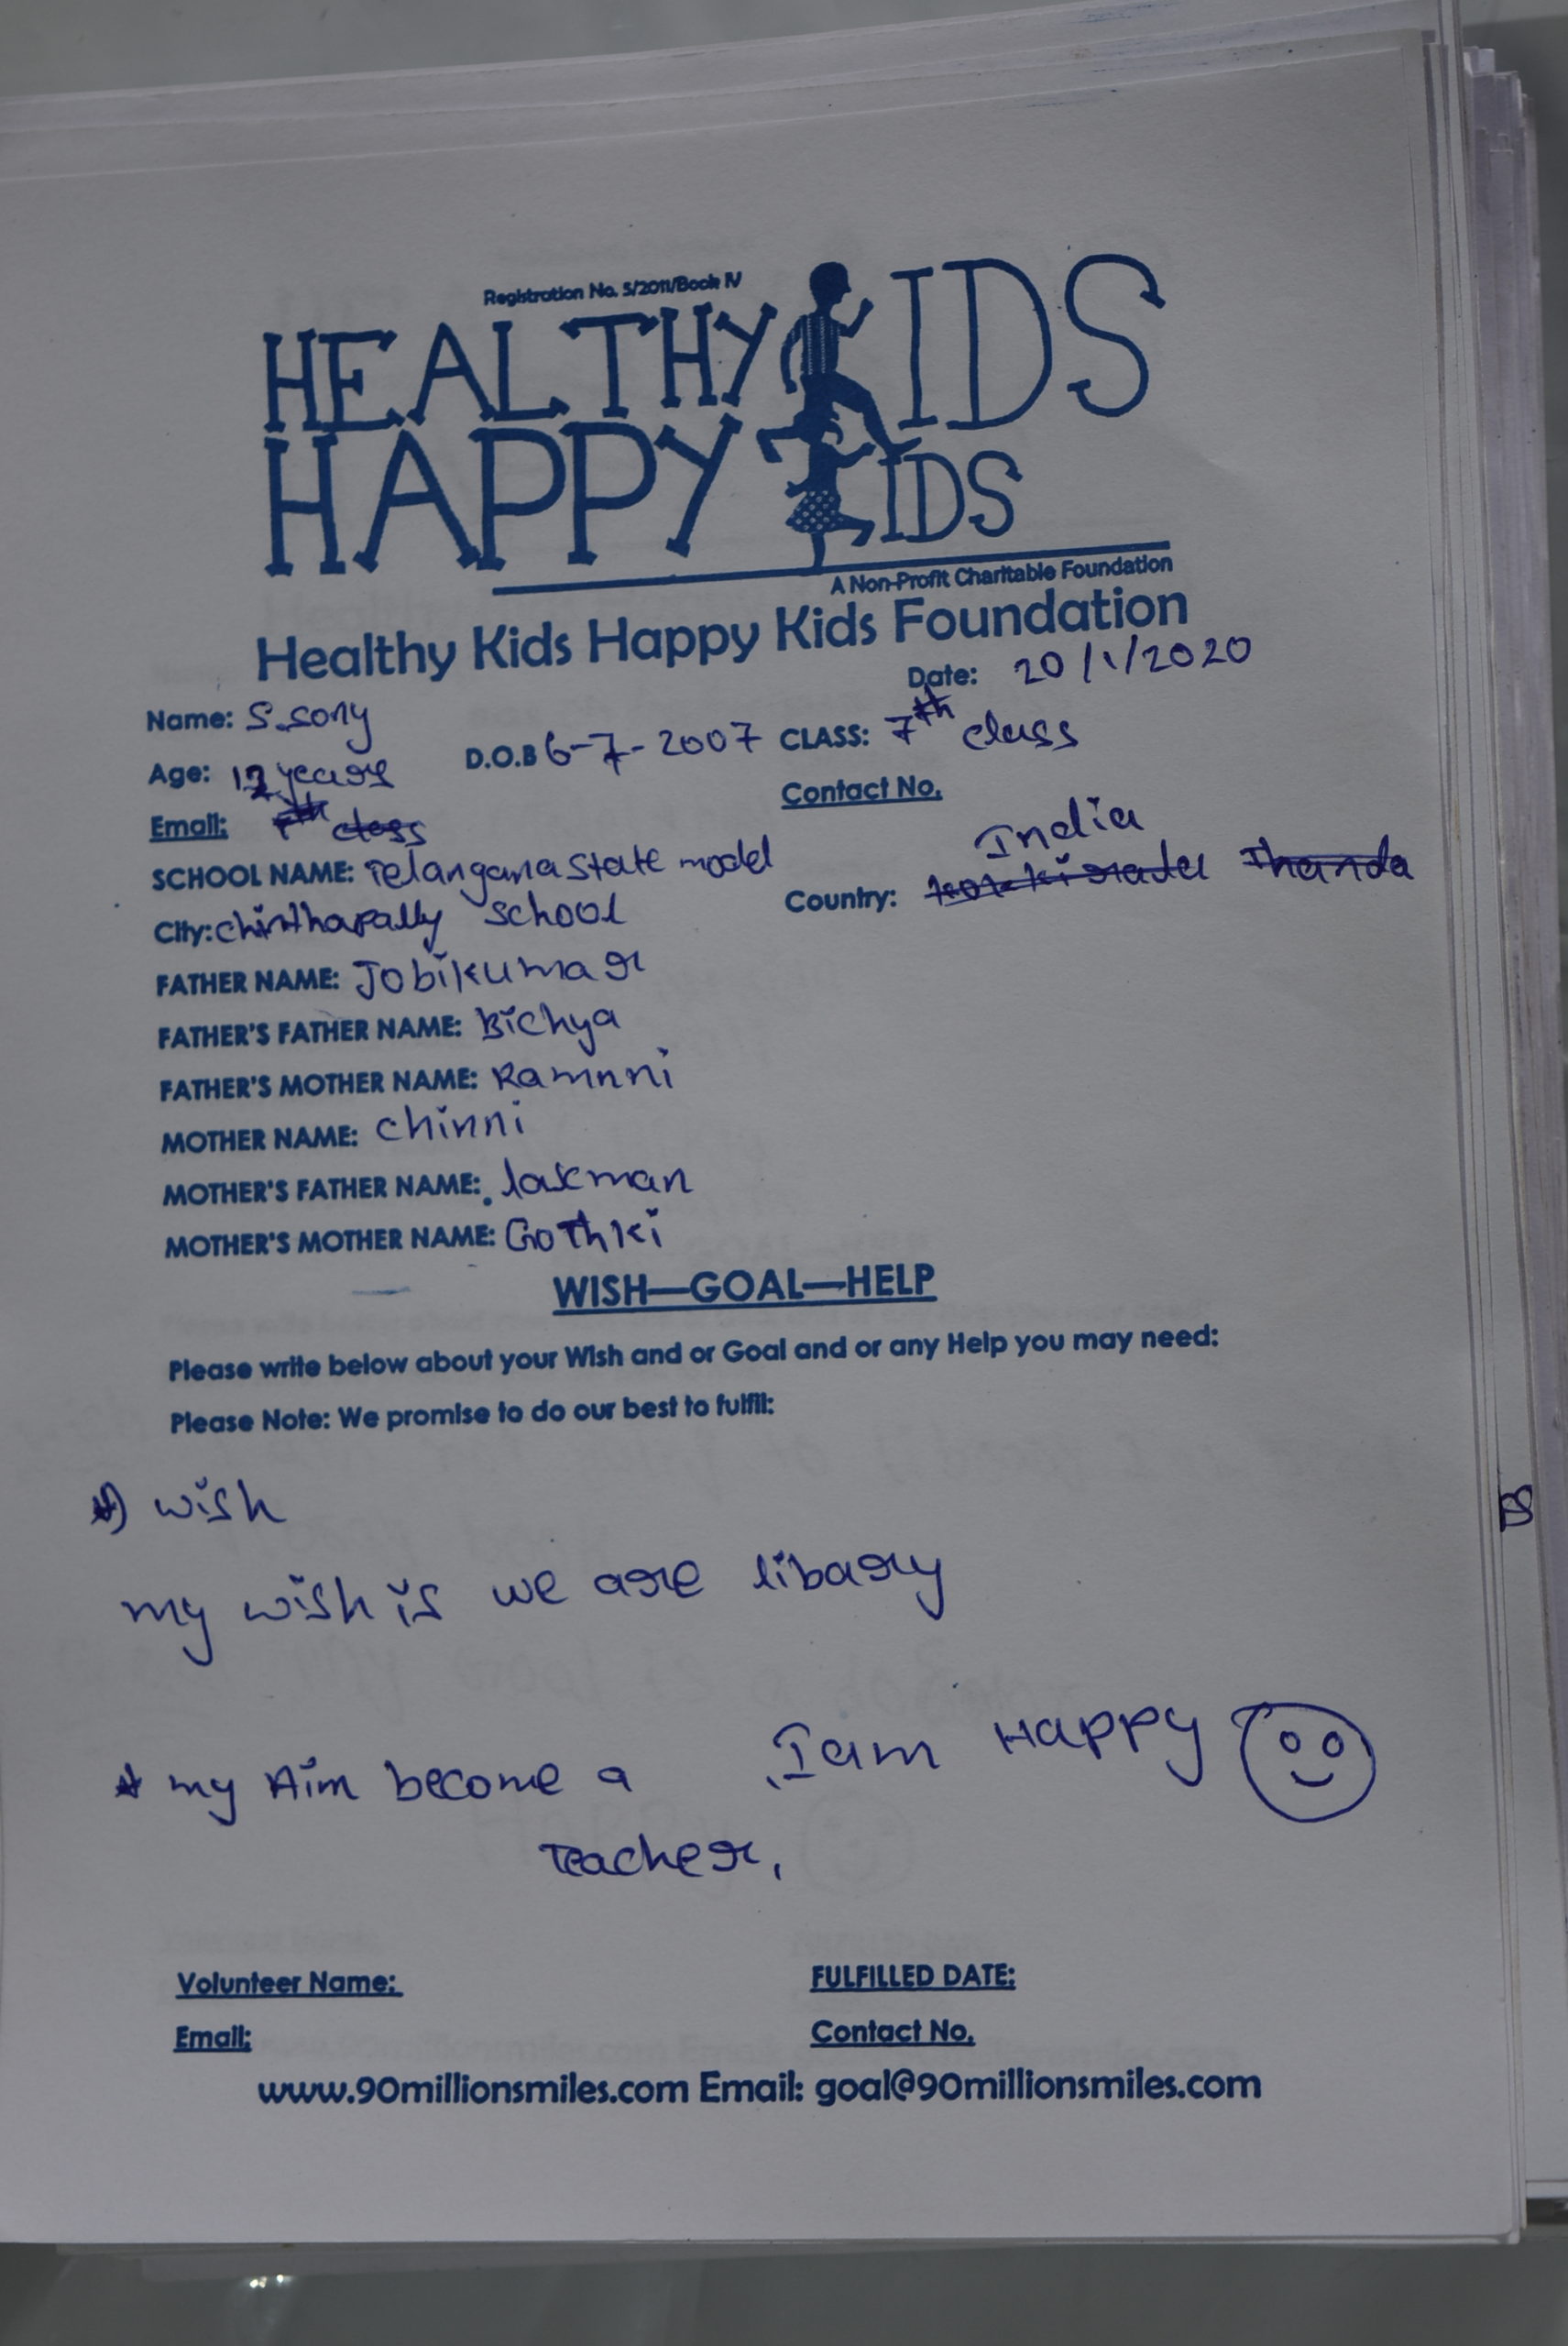 Registration No. 5/2011/Book IV
HEALTHY KIDS
HAPPY KIDS
A Non-Profit Charitable Foundation
Healthy Kids Happy Kids Foundation
Date: 20/1/2020
Name: S.sony
D.O.B 6-7-2007 CLASS: 7th class
Age: 12 years
Contact No.
Email: 7th class
India
SCHOOL NAME: Telangana state model
Country: Thanda
City: chinthapally school
FATHER NAME: Jobikumar
FATHER'S FATHER NAME: Bichya
FATHER'S MOTHER NAME: Ramnni
MOTHER NAME: chinni
MOTHER'S FATHER NAME: laxman
MOTHER'S MOTHER NAME: Gothki
WISH—GOAL—HELP
Please write below about your Wish and or Goal and or any Help you may need:
Please Note: We promise to do our best to fulfil:
wish
my wish is we are libary
I am Happy
my Aim become a
Teacher.
Volunteer Name:
FULFILLED DATE:
Email:
Contact No.
www.90millionsmiles.com Email: goal@90millionsmiles.com